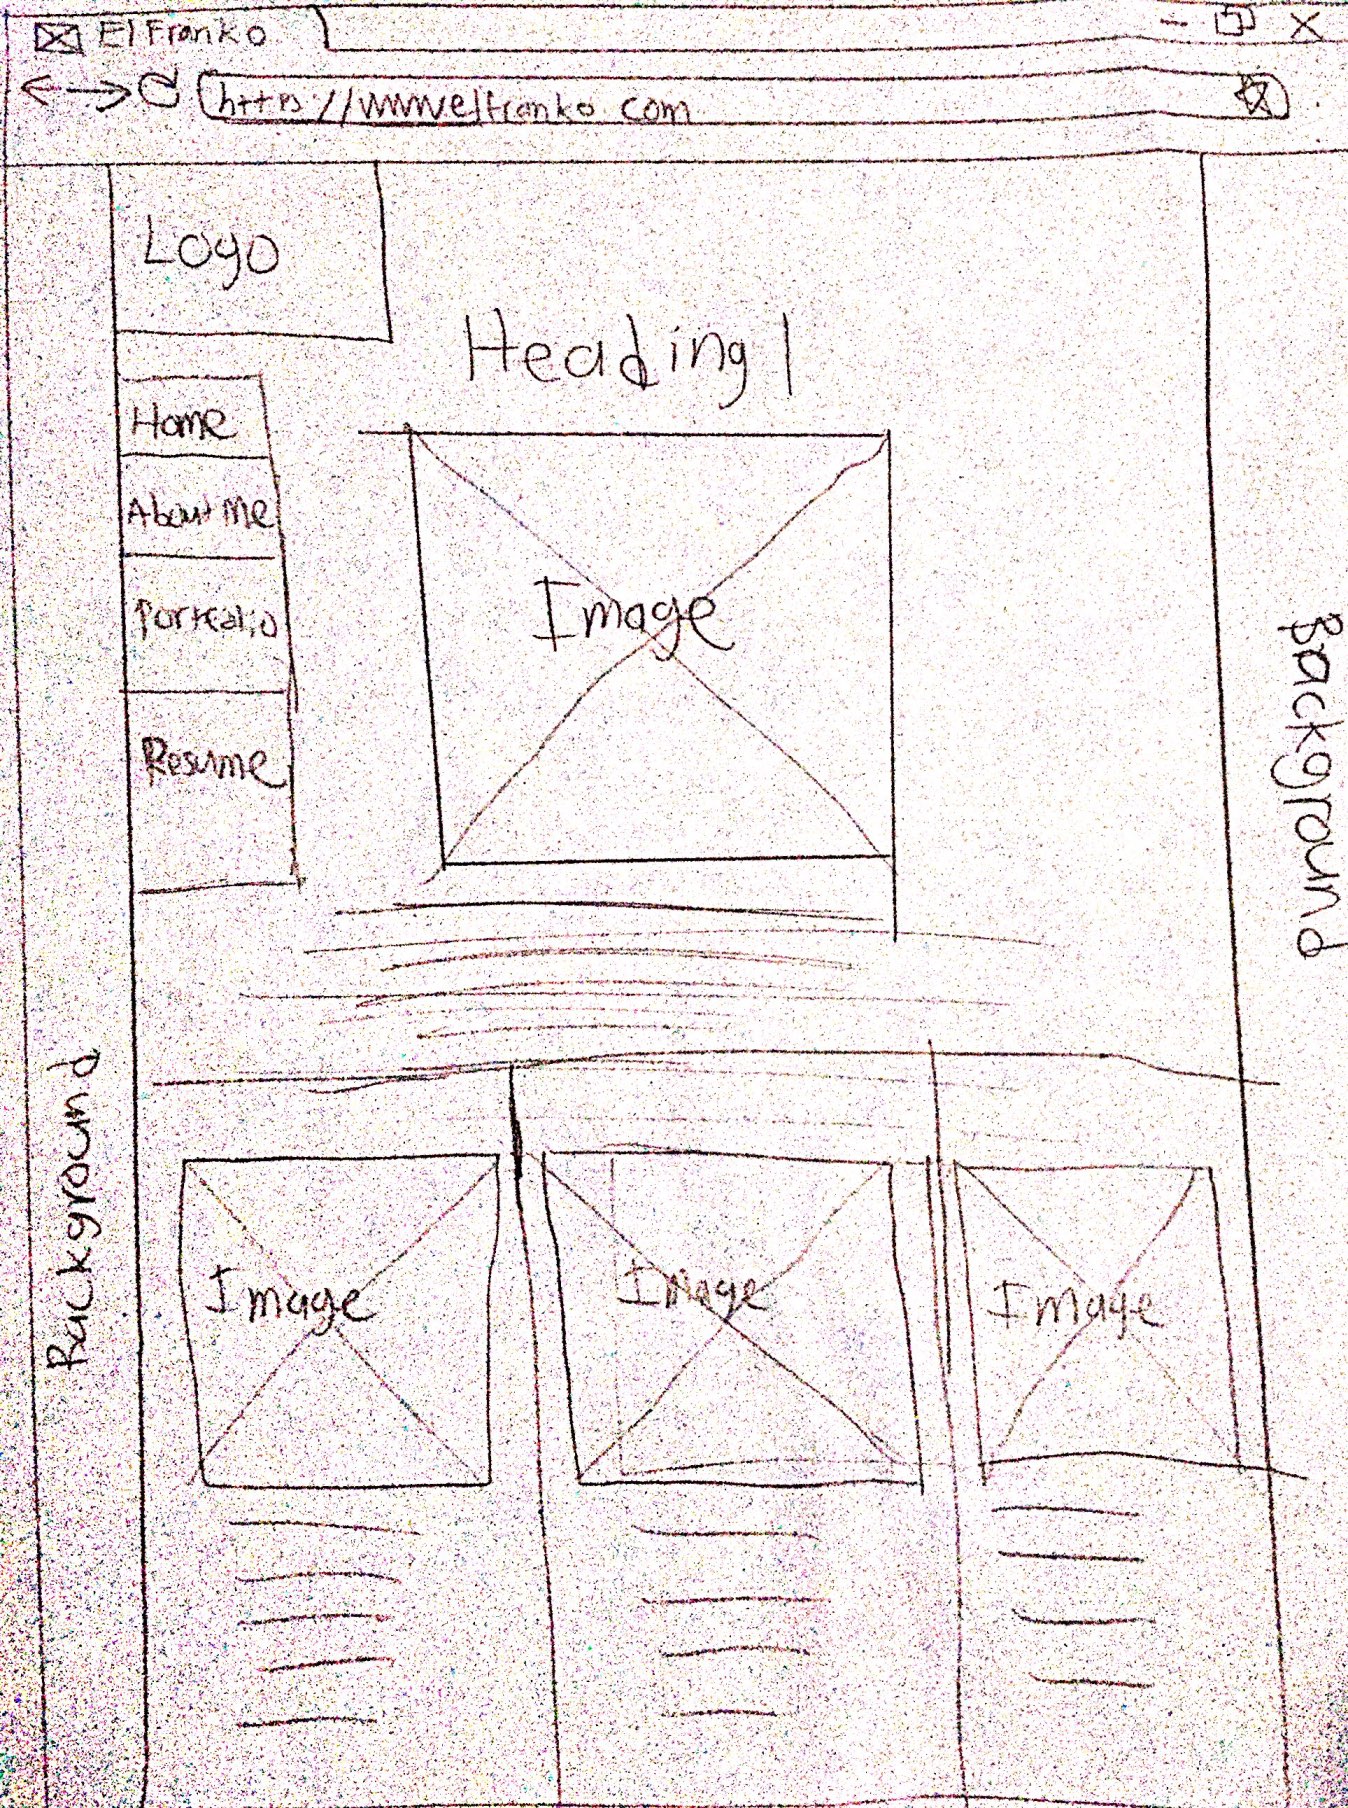 El Franko
https://www.elfranko.com
Logo
Heading 1
Home
About Me
Portfolio
Resume
Image
Background
Background
Image
Image
Image